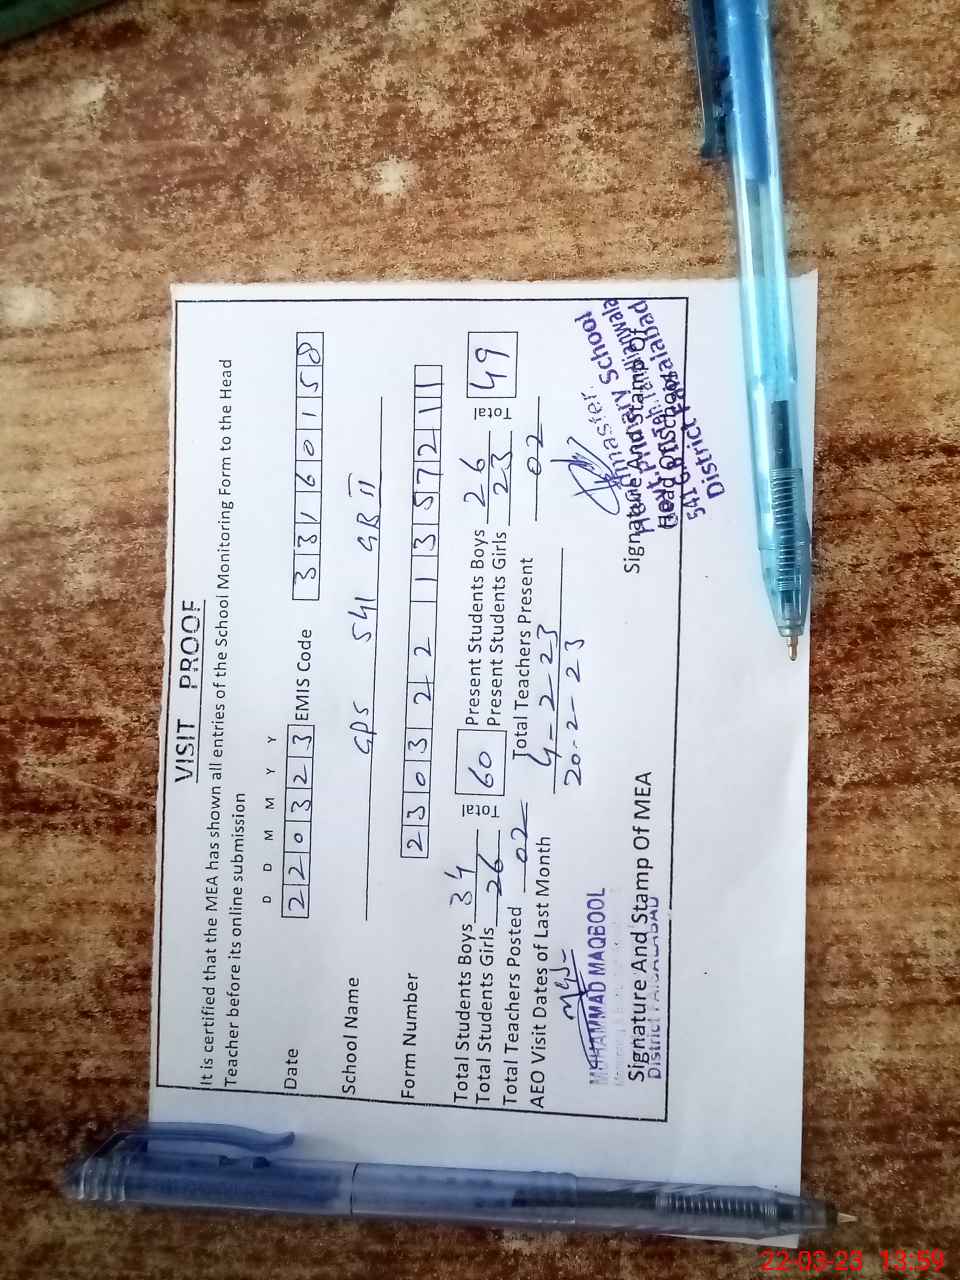 VISIT PROOF
It is certified that the MEA has shown all entries of the School Monitoring Form to the Head
Teacher before its online submission
D D M M Y Y
Date 220323 EMIS Code 33160158
School Name GPS 541 GB II
Form Number 2303221357211
Total Students Boys 34 Total 60 Present Students Boys 26 Total 49
Total Students Girls 26 Present Students Girls 23
Total Teachers Posted 02 Total Teachers Present 02
AEO Visit Dates of Last Month 4-2-23
20-2-23
MUHAMMAD MAQBOOL
Signature And Stamp Of MEA
District FAISALABAD
Signature And Stamp Of
Head Of School
Govt. Primary School
541 G.B.
District Faisalabad
22-03-23 13:59